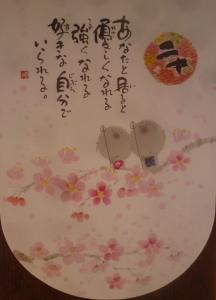 あなたと居ると
優しくなれる
強くなれる
好きな自分で
いられる。